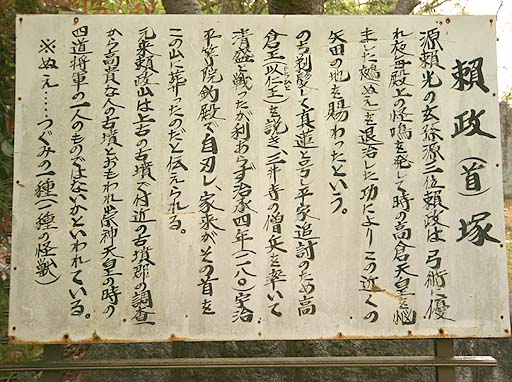 頼政(首)塚
源頼光の玄孫源三位頼政は弓術に優
れ夜毎殿上の怪鳴を発して時の高倉天皇を悩
ました鵺(ぬえ)を退治した功によりこの近くの
矢田の地を賜わったという。
のち剃髪して真蓮と号し平家追討のため高
倉宮(以仁王)を説き、三井寺の僧兵を率いて
清盛と戦ったが利あらず治承四年(一一八〇)宇治
平等院釣殿で自刃し、家来がその首を
この山に葬ったのだと伝えられる。
元来頼政山は上古の古墳で付近の古墳群の調査
から高貴な人の古墳とおもわれ崇神天皇の時の
四道将軍の一人のものではないかといわれている。
※ぬえ…つぐみの一種(一種の怪獣)